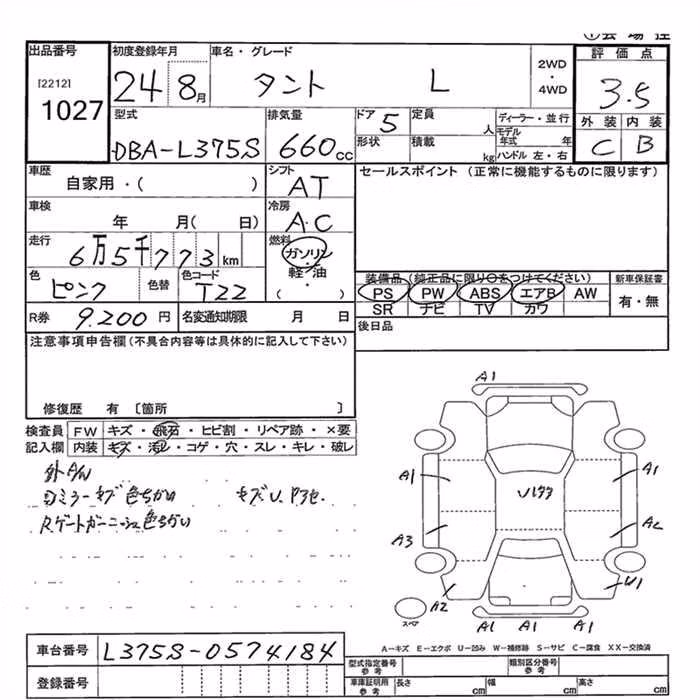 出品番号 [2212] 1027
初度登録年月 24 8月
車名・グレード タント L
2WD・4WD
評価点 3.5
外装 C 内装 B
型式 DBA-L375S
排気量 660cc
ドア 5 形状
定員 人
積載 kg
ディーラー・並行
モデル年式 年
ハンドル 左・右
車歴 自家用・( )
シフト AT
セールスポイント (正常に機能するものに限ります)
車検 年 月( 日)
冷房 A・C
走行 6万5千773km
燃料 ガソリン・軽油・( )
色 ピンク 色替 色コード T22
装備品 (純正品に限り○をつけてください)
PS PW ABS エアB AW
SR ナビ TV カワ
新車保証書 有・無
R券 9.200円 名変通知期限 月 日
後日品
注意事項申告欄(不具合内容等は具体的に記入して下さい)
修復歴 有 〔箇所 〕
検査員記入欄
FW キズ・飛石・ヒビ割・リペア跡・×要
内装 キズ・汚レ・コゲ・穴・スレ・キレ・破レ
ミラーキズ 色ちがい キズU.
Rゲートガーニッシュ色ちがい
A1
A1 A1
A3 A2
A2 U1
スペア
A1 A1 A1
A－キズ E－エクボ U－凹み W－補修跡 S－サビ C－腐食 XX－交換済
車台番号 L375S-0574184
登録番号
型式指定番号 参考
類別区分番号 参考
車庫証明用 参考 長さ cm 幅 cm 高さ cm